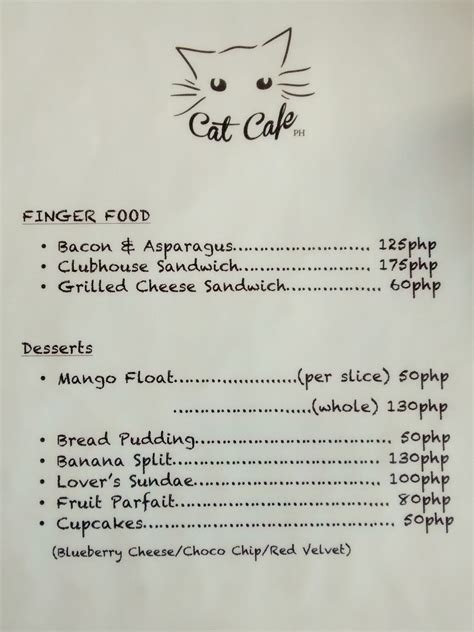 Cat Cafe PH
FINGER FOOD
• Bacon & Asparagus........................ 125php
• Clubhouse Sandwich...................... 175php
• Grilled Cheese Sandwich................. 60php
Desserts
• Mango Float.....................(per slice) 50php
.......................(whole) 130php
• Bread Pudding............................... 50php
• Banana Split................................. 130php
• Lover's Sundae............................. 100php
• Fruit Parfait................................. 80php
• Cupcakes...................................... 50php
(Blueberry Cheese/Choco Chip/Red Velvet)